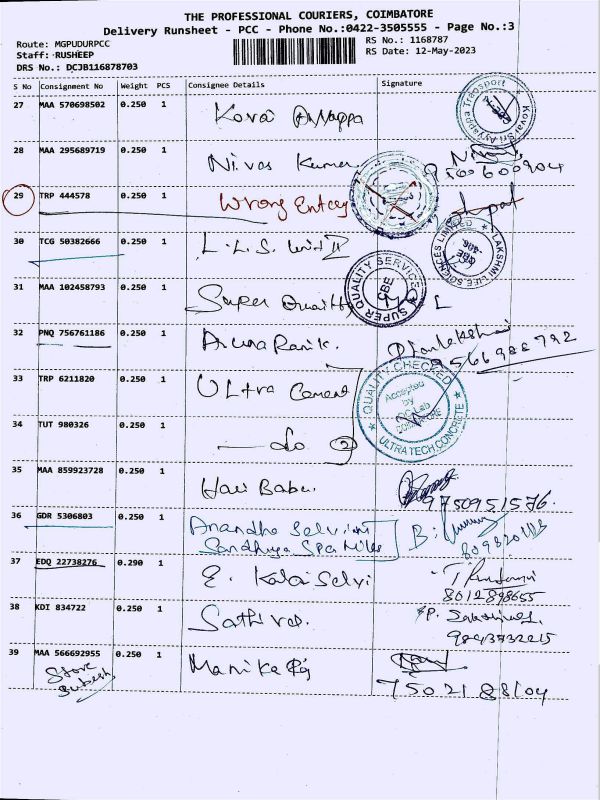 THE PROFESSIONAL COURIERS, COIMBATORE
Delivery Runsheet - PCC - Phone No.:0422-3505555 - Page No.:3
Route: MGPUDURPCC
RS No.: 1168787
Staff: RUSHEEP
RS Date: 12-May-2023
DRS No.: DCJB116878703
S No Consignment No Weight PCS Consignee Details Signature
27 MAA 570698502 0.250 1 Kovai
28 MAA 295689719 0.250 1 Nivas Kumar
29 TRP 444578 0.250 1 Wrong Entry
30 TCG 50382666 0.250 1 L.L.S. Unit II
LAKSHMI LIFE SCIENCES LIMITED
31 MAA 102458793 0.250 1 Super Quality
SUPER QUALITY SERVICE
CBE
32 PNQ 756761186 0.250 1 Aruna Rani K.
9566988792
33 TRP 6211820 0.250 1 Ultra Cement
QUALITY CHECKED
Accepted
by
QC Lab
ULTRA TECH CONCRETE
34 TUT 980326 0.250 1 do 2
35 MAA 859923728 0.250 1 Hari Babu.
9750951576.
36 GDR 5306803 0.250 1 Anandha Selvi
Sandhya Spa Mills
37 EDQ 22738276 0.290 1 E. Kala Selvi
8012898655
38 KDI 834722 0.250 1 Sathivel
39 MAA 566692955 0.250 1 Manika Raj
Store